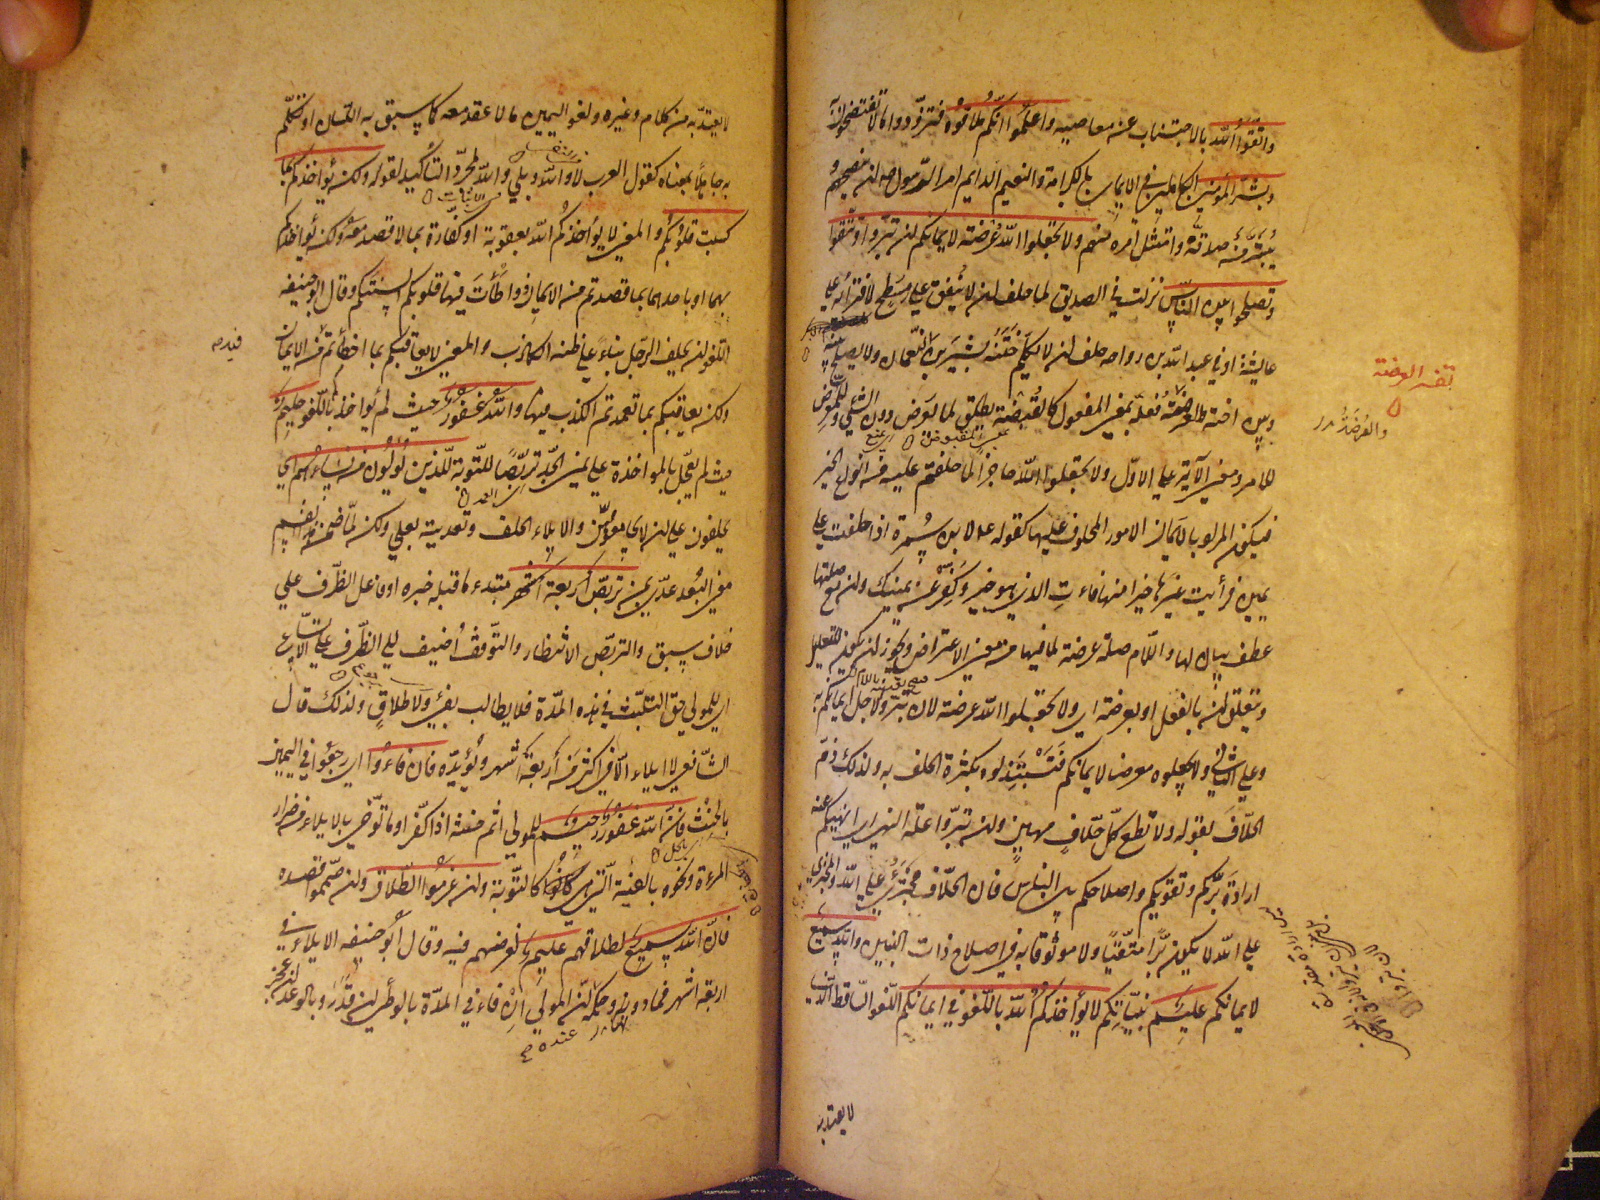 واتقوا الله بالاجتناب عن معاصيه واعلموا انكم ملاقوه فتزودوا ما لا تفتضحون به
وبشر المؤمنين الكاملين في الايمان بالكرامة والنعيم الدايم امر الرسول صلعم ان ينصحهم و
يبشر من صدقه وامتثل امره منهم ولا تجعلوا الله عرضة لايمانكم ان تبروا وتتقوا
وتصلحوا بين الناس نزلت في الصديق لما حلف ان لا ينفق على مسطح لافترائه على
عايشة او في عبد الله بن رواحه حلف ان لا يكلم ختنه بشير بن النعمان ولا يصلح بينه
وبين اخته والعرضة فعلة بمعنى المفعول كالقبضة يطلق لما يعرض دون الشئ وللمعرض
للامر ومعنى الآية على الاول ولا تجعلوا الله حاجزا لما حلفتم عليه من انواع الخير
فيكون المراد بالايمان الامور المحلوف عليها كقوله عم لابن سمرة اذا حلفت على
يمين فرأيت غيرها خيرا منها فاءت الذي هو خير وكفر عن يمينك وان مع صلتها
عطف بيان لها واللام صلة عرضة لما فيها من معنى الاعتراض ويجوز ان يكون للتعليل
ويتعلق ان بالفعل او بعرضة اي ولا تجعلوا الله عرضة لان تبروا لاجل ايمانكم به
وعلى الثاني ولا تجعلوه معرضا لايمانكم فتبتذلوه بكثرة الحلف به ولذلك ذم
الحلاف بقوله ولا تطع كل حلاف مهين وان تبروا علة النهي اي انهيكم عنه
ارادة بركم وتقويكم واصلاحكم بين الناس فان الحلاف مجترئ على الله والمجترئ
على الله لا يكون برا متقيا ولا موثوقا به في اصلاح ذات البين والله سميع
لايمانكم عليم بنياتكم لا يؤاخذكم الله باللغو في ايمانكم اللغو الساقط الذي
لا يعتد به
تفسير العرضة
والعرضة
لا يعتد به من كلام وغيره ولغو اليمين ما لا عقد معه كما سبق به اللسان او تكلم
به جاهلا بمعناه كقول العرب لا والله وبلى والله لمجرد التأكيد لقوله ولكن يؤاخذكم بما
كسبت قلوبكم والمعنى لا يؤاخذكم الله بعقوبة او كفارة بما لا قصد معه ولكن يؤاخذكم
بهما او باحدهما بما قصدتم من الايمان وواطأت فيها قلوبكم السنتكم وقال ابو حنيفه
اللغو ان يحلف الرجل بناء على ظنه الكاذب والمعنى لا يعاقبكم بما اخطأتم فيه من الايمان
ولكن يعاقبكم بما تعمدتم الكذب فيها والله غفور حيث لم يؤاخذكم باللغو حليم
حيث لم يعجل بالمواخذة على يمين الجد تربصا للتوبة للذين يؤلون من نسائهم اي
يحلفون على ان لا يجامعوهن والايلاء الحلف وتعديته بعلى ولكن لما ضمن هذا القسم
معنى البعد عدى بمن تربص اربعة اشهر مبتدء ما قبله خبره او فاعل الظرف على
خلاف سبق والتربص الانتظار والتوقف اضيف الى الظرف على الاتساع
اي للمولي حق التلبث في هذه المدة فلا يطالب بفئ ولا طلاق ولذلك قال
الشافعي لا ايلاء الا في اكثر من اربعة اشهر ويؤيده فان فاءوا اي رجعوا في اليمين
بالحنث فان الله غفور رحيم للمولي اثم حنثه اذا كفر او ما توخى بالايلاء من ضرار
المرءة ونحوه بالفيئة التي هي كالتوبة وان عزموا الطلاق وان صمموا قصده
فان الله سميع لطلاقهم عليم بغرضهم فيه وقال ابو حنيفه الايلاء في
اربعة اشهر فما دونه وحكمه ان المولي ان فاء في المدة بالوطئ ان قدر وبالوعد ان عجز